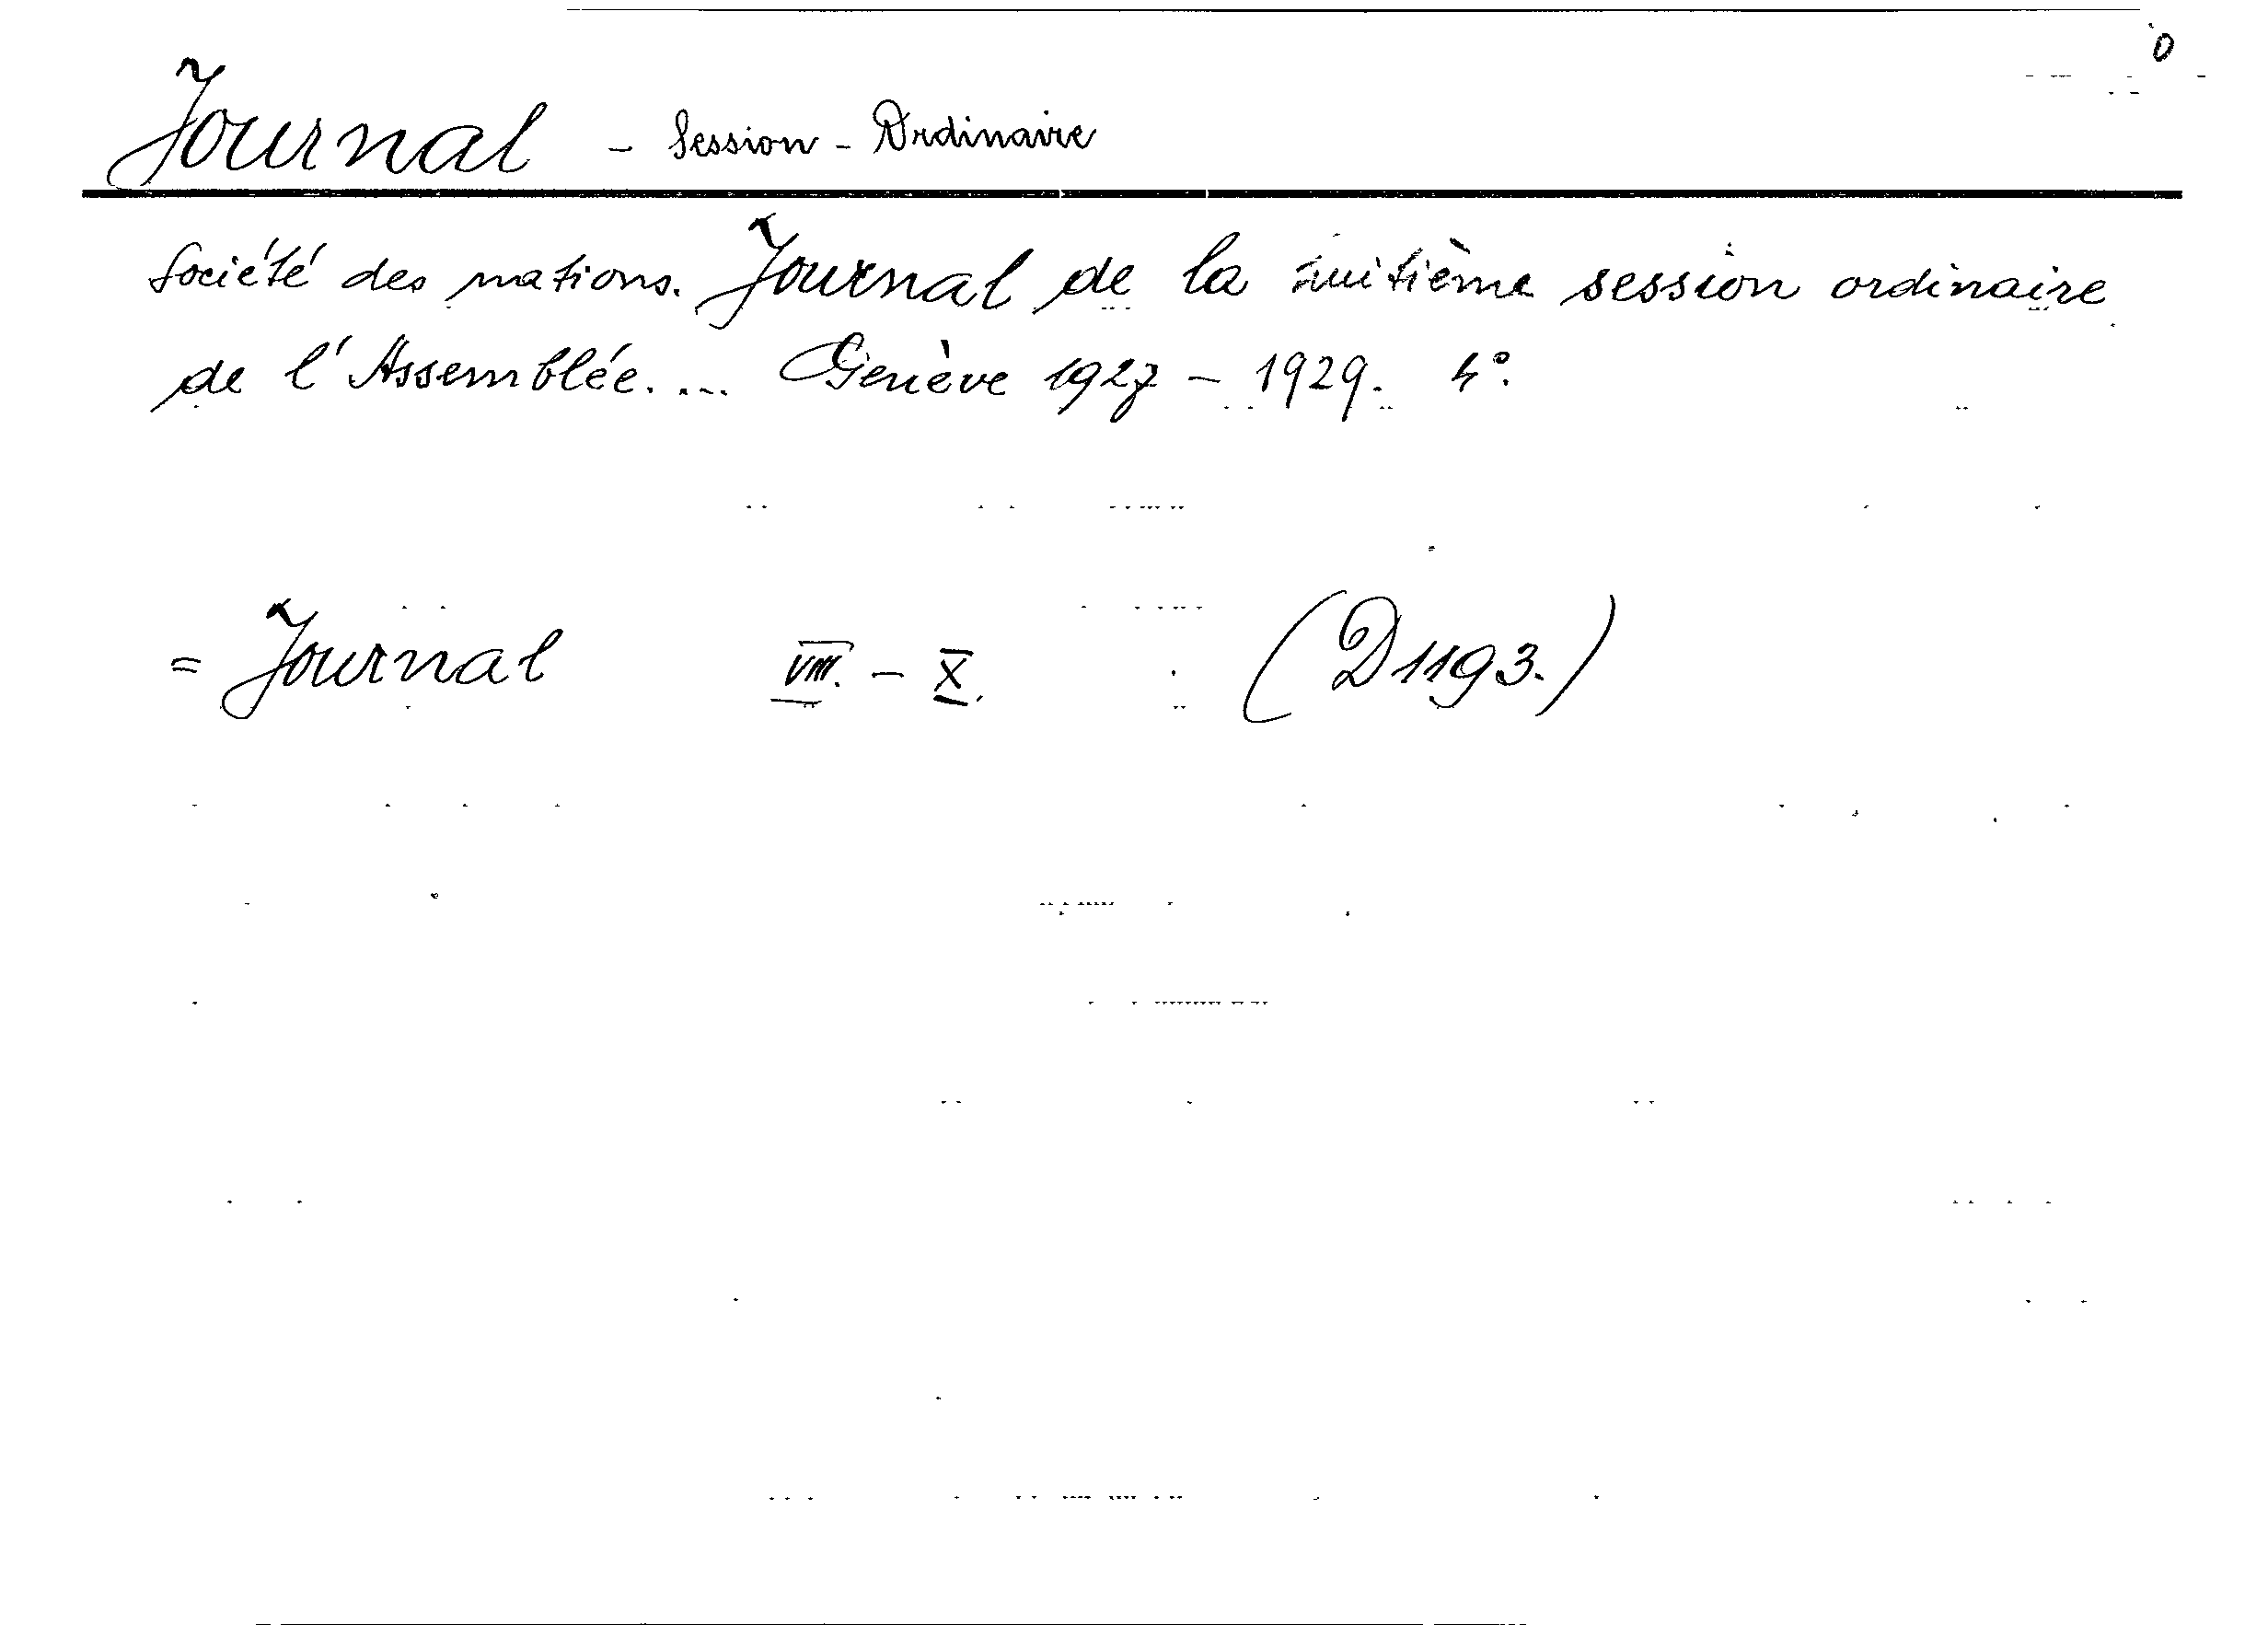 0
Journal - Session - Ordinaire
Société des nations. Journal de la huitième session ordinaire
de l'Assemblée. ... Genève 1927 - 1929. 4°.
= Journal VIII. - X. (D 1193.)